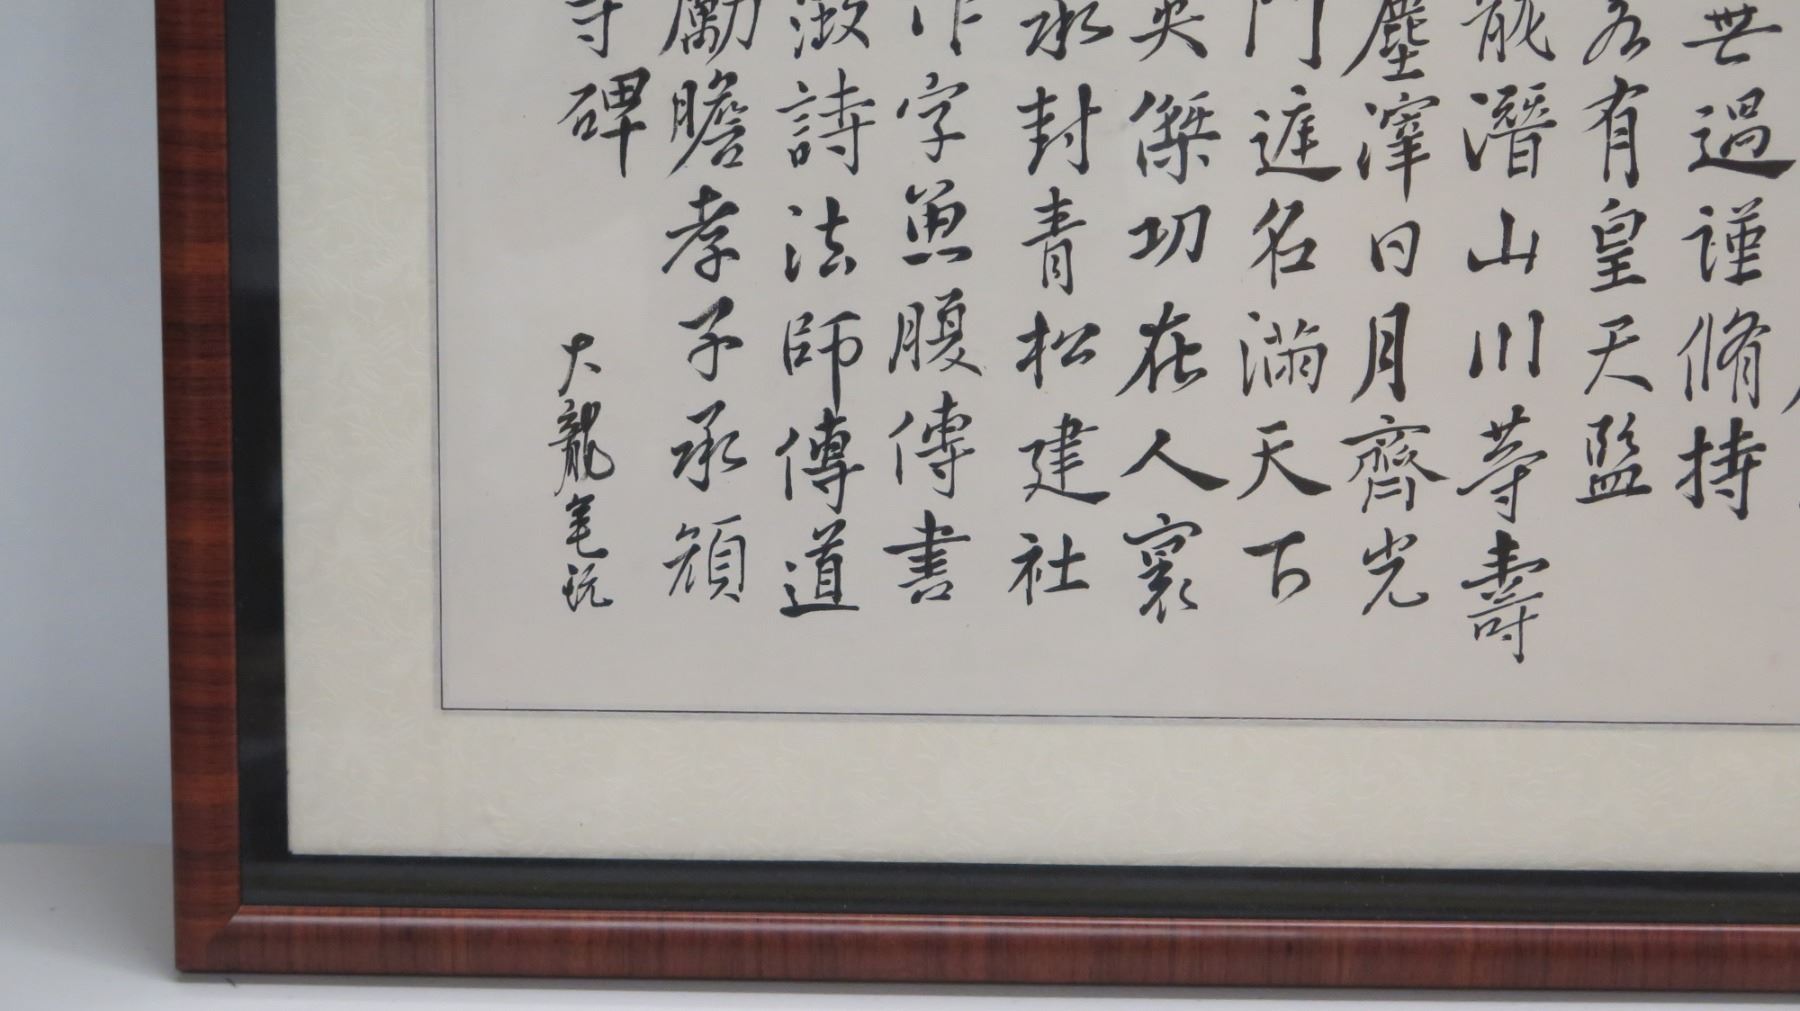 無過謹脩持
有皇天監
龍潛山川等壽
塵滓日月齊光
門庭名滿天下
英傑功在人寰
永封青松建社
作字魚腹傳書
激詩法師傳道
勵瞻孝子承顔
寺碑
大龍